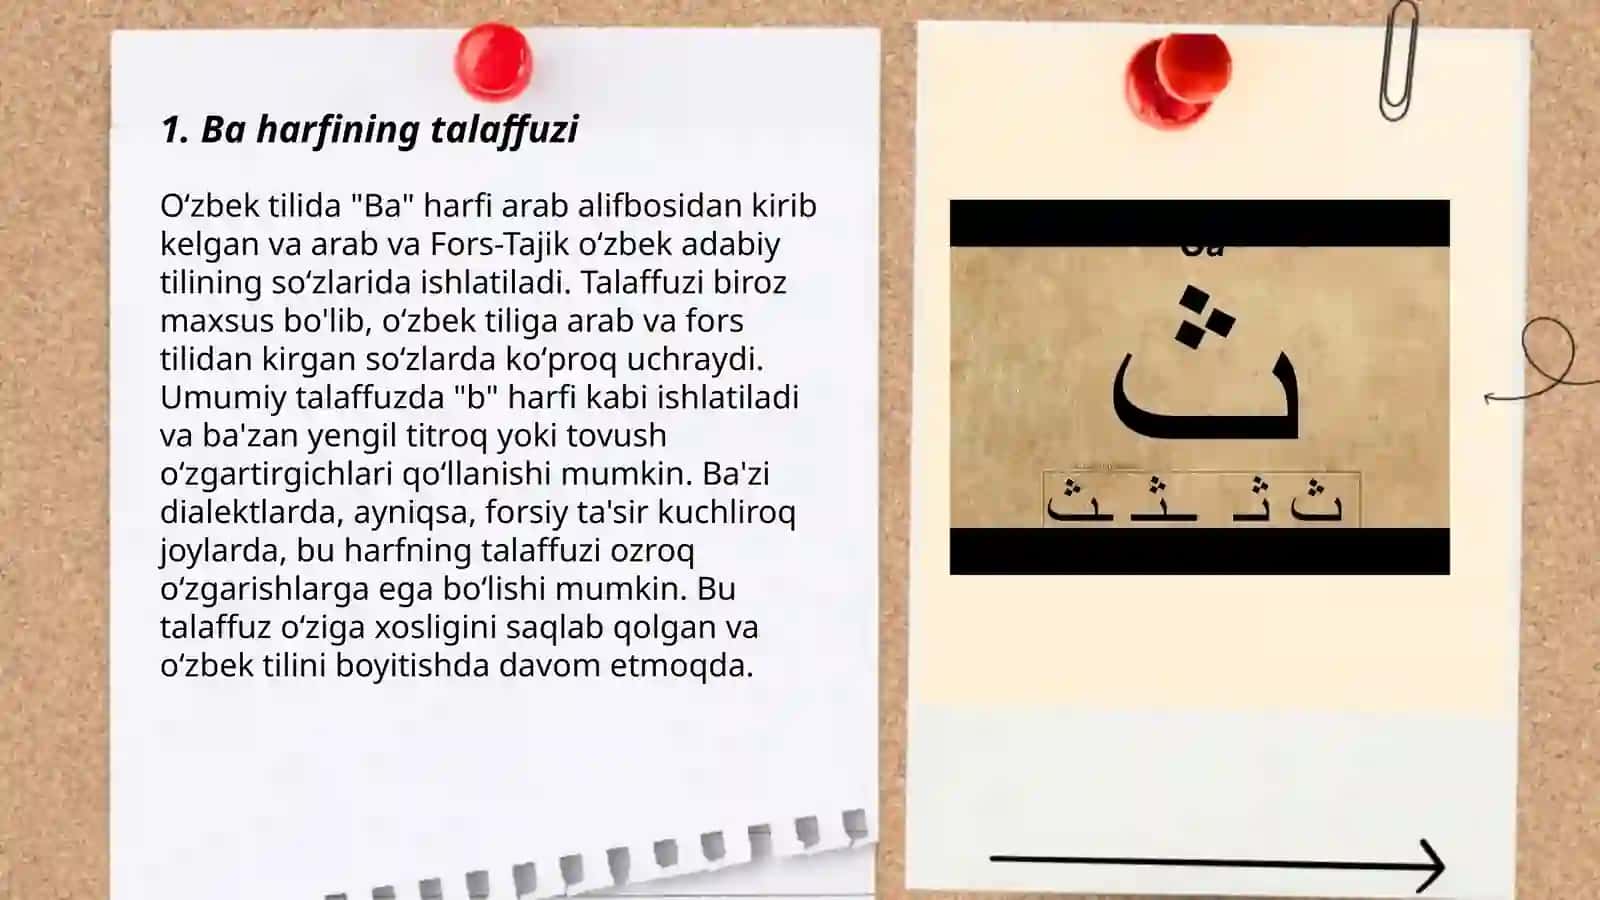 1. Ba harfining talaffuzi
Oʻzbek tilida "Ba" harfi arab alifbosidan kirib
kelgan va arab va Fors-Tajik oʻzbek adabiy
tilining soʻzlarida ishlatiladi. Talaffuzi biroz
maxsus bo'lib, oʻzbek tiliga arab va fors
tilidan kirgan soʻzlarda koʻproq uchraydi.
Umumiy talaffuzda "b" harfi kabi ishlatiladi
va ba'zan yengil titroq yoki tovush
oʻzgartirgichlari qoʻllanishi mumkin. Ba'zi
dialektlarda, ayniqsa, forsiy ta'sir kuchliroq
joylarda, bu harfning talaffuzi ozroq
oʻzgarishlarga ega boʻlishi mumkin. Bu
talaffuz oʻziga xosligini saqlab qolgan va
oʻzbek tilini boyitishda davom etmoqda.
ث
ث ثـ ـثـ ـث